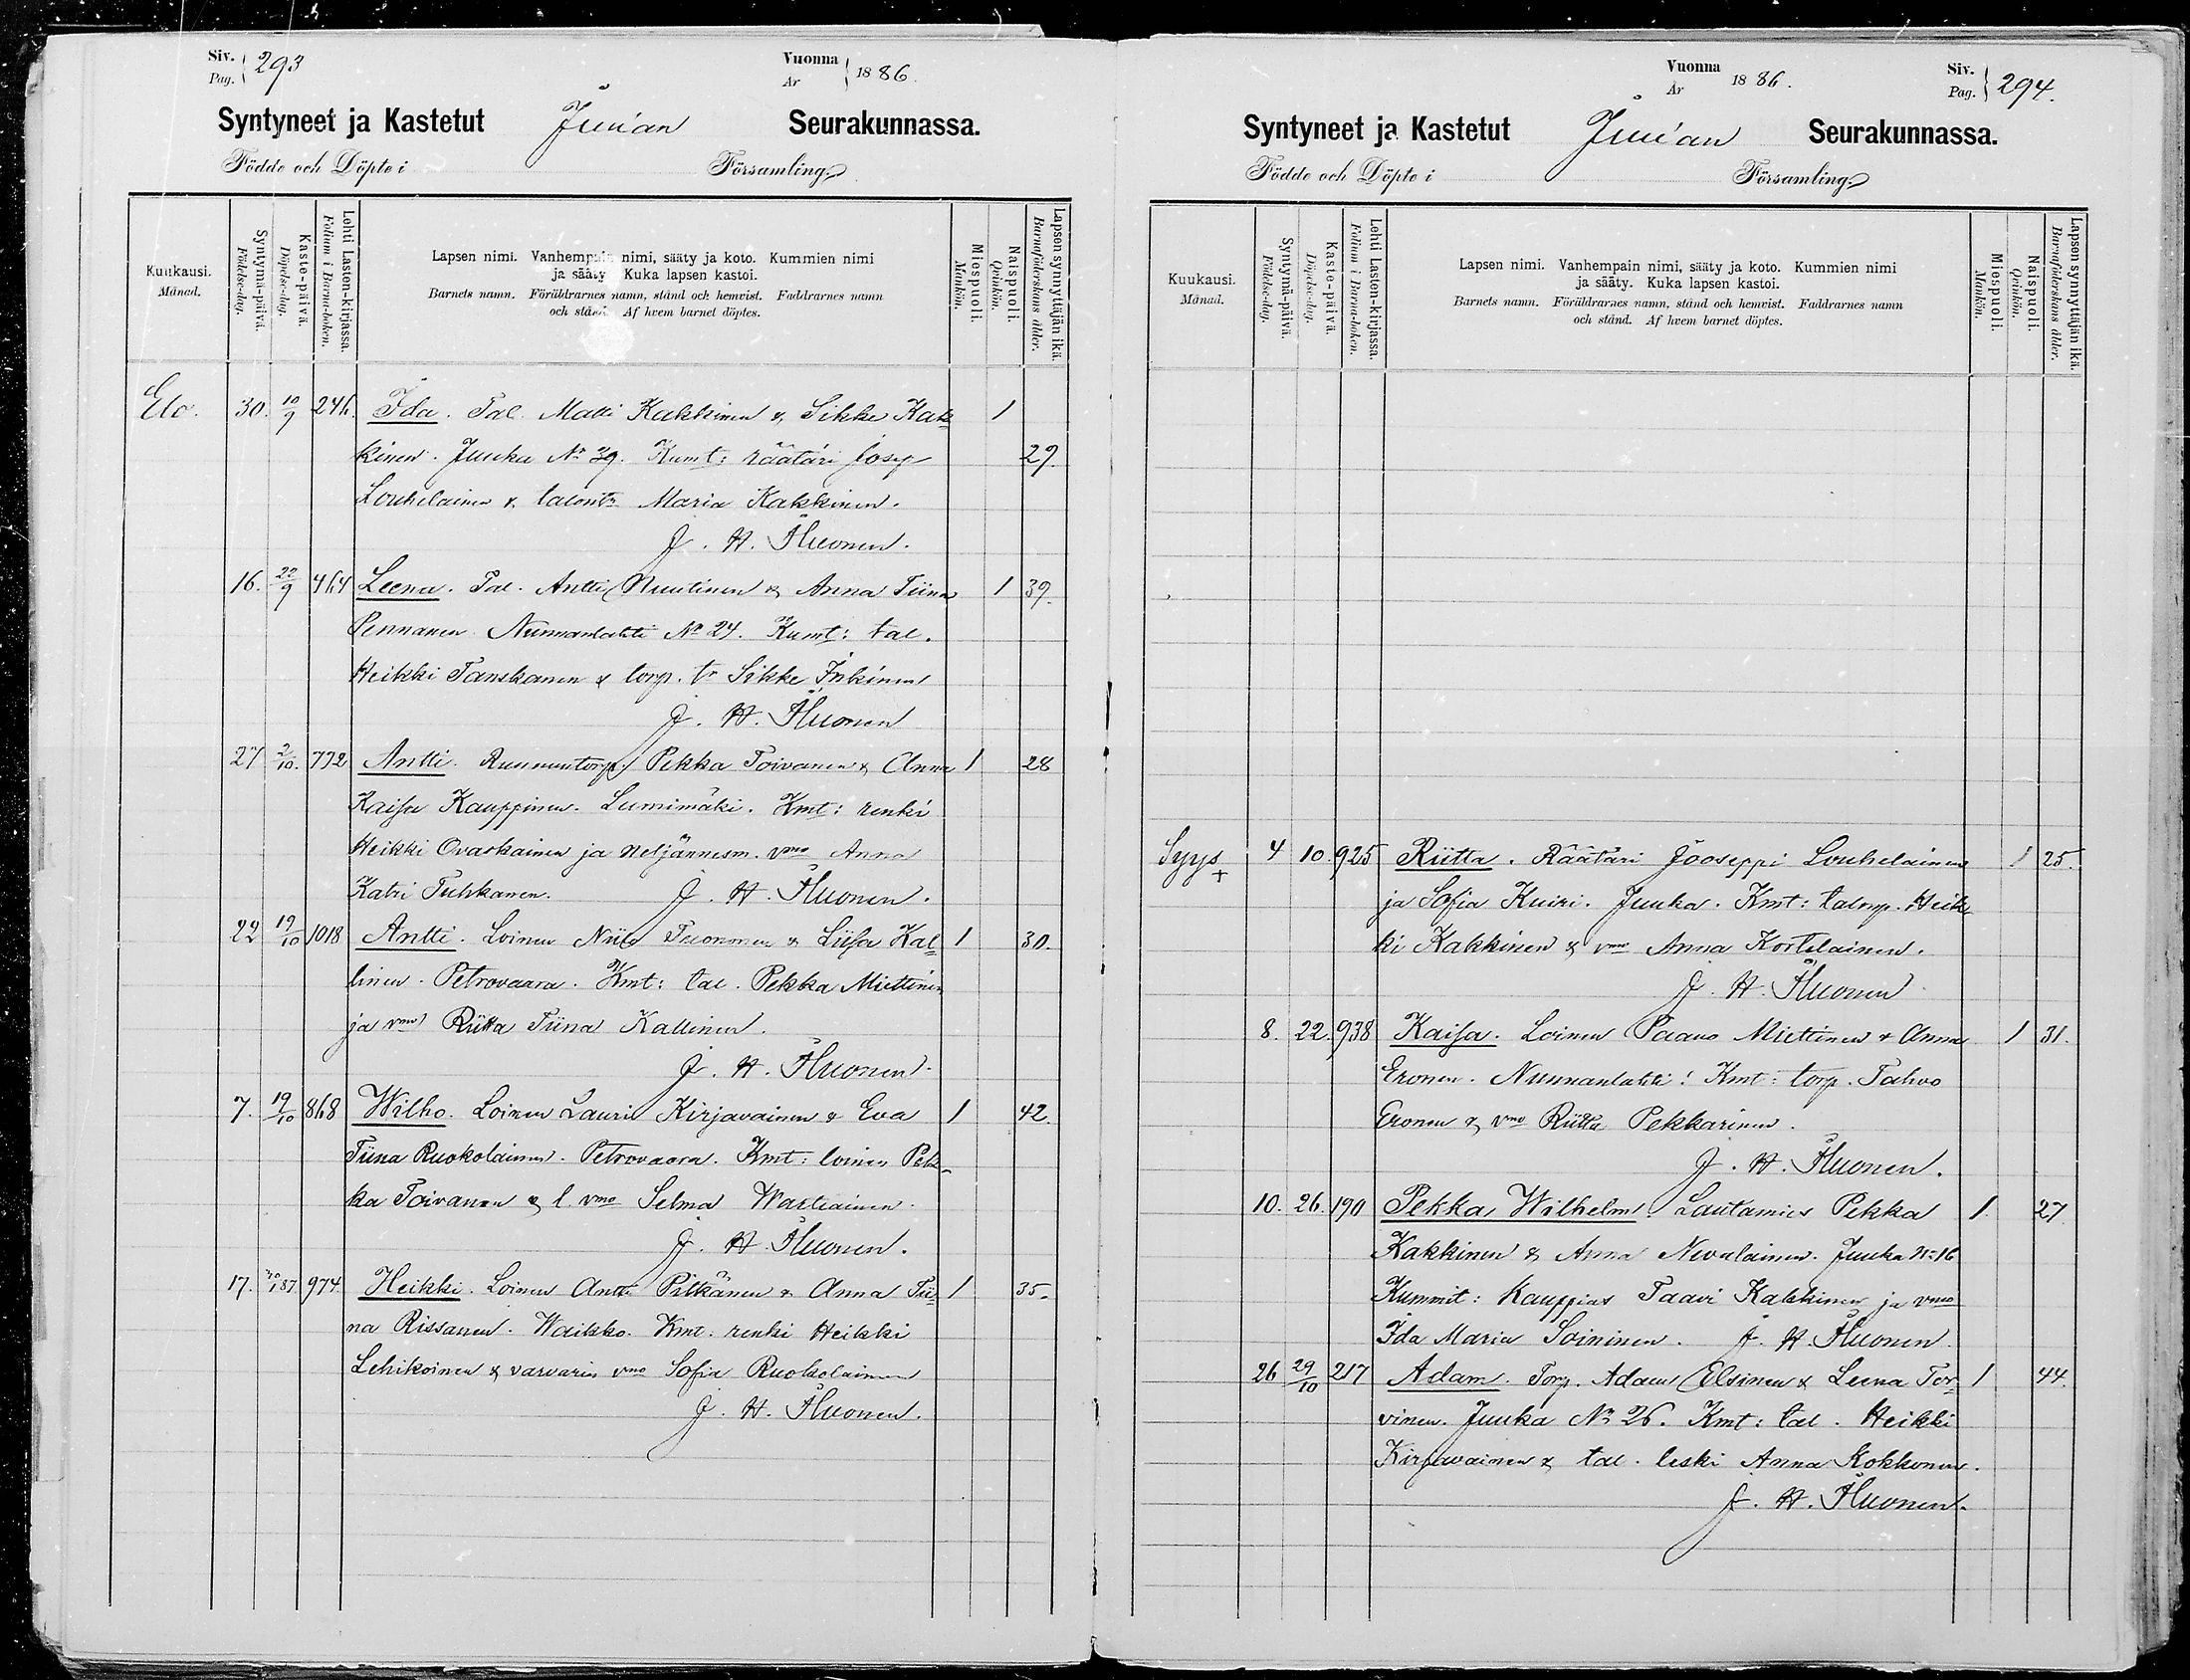 Siv. Pag. 293
Vuonna År 1886.
Syntyneet ja Kastetut Juuan Seurakunnassa.
Födde och Döpte i Församling.
Kuukausi. Månad.
Syntymä-päivä. Födelse-dag.
Kaste-päivä. Döpelse-dag.
Lehti Lasten-kirjassa. Folium i Barna-boken.
Lapsen nimi. Vanhempain nimi, sääty ja koto. Kummien nimi
ja sääty Kuka lapsen kastoi.
Barnets namn. Föräldrarnes namn, stånd och hemvist. Faddrarnes namn
och stånd. Af hvem barnet döptes.
Miespuoli. Mankön.
Naispuoli. Qvinkön.
Lapsen synnyttäjän ikä. Barnaföderskans ålder.
Elo. 30. 10/9 246. Ida. Tal. Matti Kakkinen & Sikke Kak= 1
kinen. Juuka No 39. Kumt: räätäri Josep 29.
Louhelainen & talontr Maria Kakkinen.
J. H. Huonen.
16. 22/9 464 Leena. Tal. Antti Nuutinen & Anna Tiina 1 39.
Pennanen Nunnanlahti No 24. Kumt: tal.
Heikki Tanskanen & torp. tr Sikke Inkinen
J. H. Huonen
27 2/10. 772 Antti. Ruununtorp. Pekka Toivanen & Anna 1 28
Kaisa Kauppinen. Lumimäki. Kmt: renki
Heikki Ovaskainen ja neljännesm. vmo Anna
Katri Tuhkanen. J. H. Huonen.
22 19/10 1018 Antti. Loinen Niilo Tuononen & Liisa Kal= 1 30.
linen. Petrovaara. Kmt: tal. Pekka Miettinen
ja vmo Riitta Tiina Kallinen.
J. H. Huonen.
7. 19/10 868 Wilho. Loinen Lauri Kirjavainen & Eva 1 42.
Tiina Ruokolainen. Petrovaara. Kmt: loinen Pek-
ka Toivanen & l. vmo Selma Wartiainen.
J. H. Huonen.
17. 87. 974. Heikki. Loinen Antti Pitkänen & Anna Tii= 1 35.
na Rissanen. Waikko. Kmt. renki Heikki
Lehikoinen & varvarin vmo Sofia Ruokolainen
J. H. Huonen.
Vuonna År 1886.
Siv. Pag. 294.
Syntyneet ja Kastetut Juuan Seurakunnassa.
Födde och Döpte i Församling.
Kuukausi. Månad.
Syntymä-päivä. Födelse-dag.
Kaste-päivä. Döpelse-dag.
Lehti Lasten-kirjassa. Folium i Barna-boken.
Lapsen nimi. Vanhempain nimi, sääty ja koto. Kummien nimi
ja sääty. Kuka lapsen kastoi.
Barnets namn. Föräldrarnes namn, stånd och hemvist. Faddrarnes namn
och stånd. Af hvem barnet döptes.
Miespuoli. Mankön.
Naispuoli. Qvinkön.
Lapsen synnyttäjän ikä. Barnaföderskans ålder.
Syys + 4 10. 925 Riitta. Räätäri Jooseppi Louhelainen 1 25.
ja Sofia Kuiri. Juuka. Kmt: talonp. Heik
ki Kakkinen & vmo Anna Kortelainen.
J. H. Huonen
8. 22. 938 Kaisa. Loinen Paavo Miettinen & Anna 1 31.
Eronen. Nunnanlahti! Kmt: torp. Tahvo
Eronen & vmo Riitta Pekkarinen.
J. H. Huonen.
10. 26. 190 Pekka Wilhelm. Lautamies Pekka 1. 27
Kakkinen & Anna Nevalainen. Juuka No 16
Kummit: Kauppias Taavi Kakkinen ja vmo
Ida Maria Soininen. J. H. Huonen
26 29/10 217 Adam. Torp. Adam Elsinen & Leena Tor= 1 44.
vinen. Juuka No 26. Kmt: tal. Heikki
Kirjavainen & tal. leski Anna Kokkonen.
J. H. Huonen.